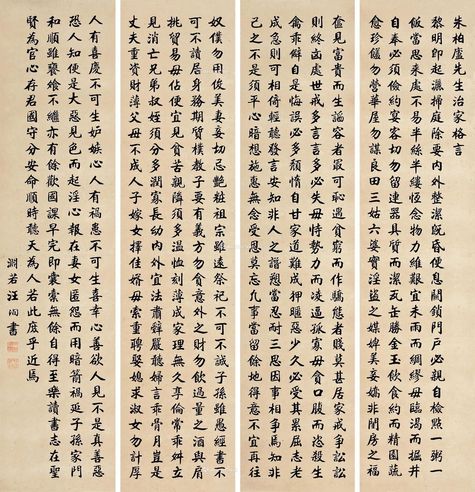 朱柏廬先生治家格言
黎明即起灑掃庭除要內外整潔既昏便息關鎖門戶必親自檢點一粥一
飯當思來處不易半絲半縷恆念物力維艱宜未雨而綢繆毋臨渴而掘井
自奉必須儉約宴客切勿留連器具質而潔瓦缶勝金玉飲食約而精園蔬
愈珍饈勿營華屋勿謀良田三姑六婆實淫盜之媒婢美妾嬌非閨房之福
奩見富貴而生諂容者最可恥遇貧窮而作驕態者賤莫甚居家戒爭訟訟
則終凶處世戒多言言多必失毋恃勢力而凌逼孤寡毋貪口腹而恣殺生
禽乖僻自是悔誤必多頹惰自甘家道難成狎暱惡少久必受其累屈志老
成急則可相倚輕聽發言安知非人之譖愬當忍耐三思因事相爭焉知非
己之不是須平心暗想施惠無念受恩莫忘凡事當留餘地得意不宜再往
奴僕勿用俊美妻妾切忌艷粧祖宗雖遠祭祀不可不誠子孫雖愚經書不
可不讀居身務期質樸教子要有義方勿貪意外之財勿飲過量之酒與肩
挑貿易毋佔便宜見貧苦親鄰須多溫恤刻薄成家理無久享倫常乖舛立
見消亡兄弟叔姪須分多潤寡長幼內外宜法肅辭嚴聽婦言乖骨月豈是
丈夫重資財薄父母不成人子嫁女擇佳婿毋索重聘娶媳求淑女勿計厚
人有喜慶不可生妒嫉心人有禍患不可生喜幸心善欲人見不是真善惡
恐人知便是大惡見色而起淫心報在妻女匿怨而用暗箭禍延子孫家門
和順雖饔飧不繼亦有餘歡國課早完即囊橐無餘自得至樂讀書志在聖
賢為官心存君國守分安命順時聽天為人若此庶乎近焉
淵若汪洵書